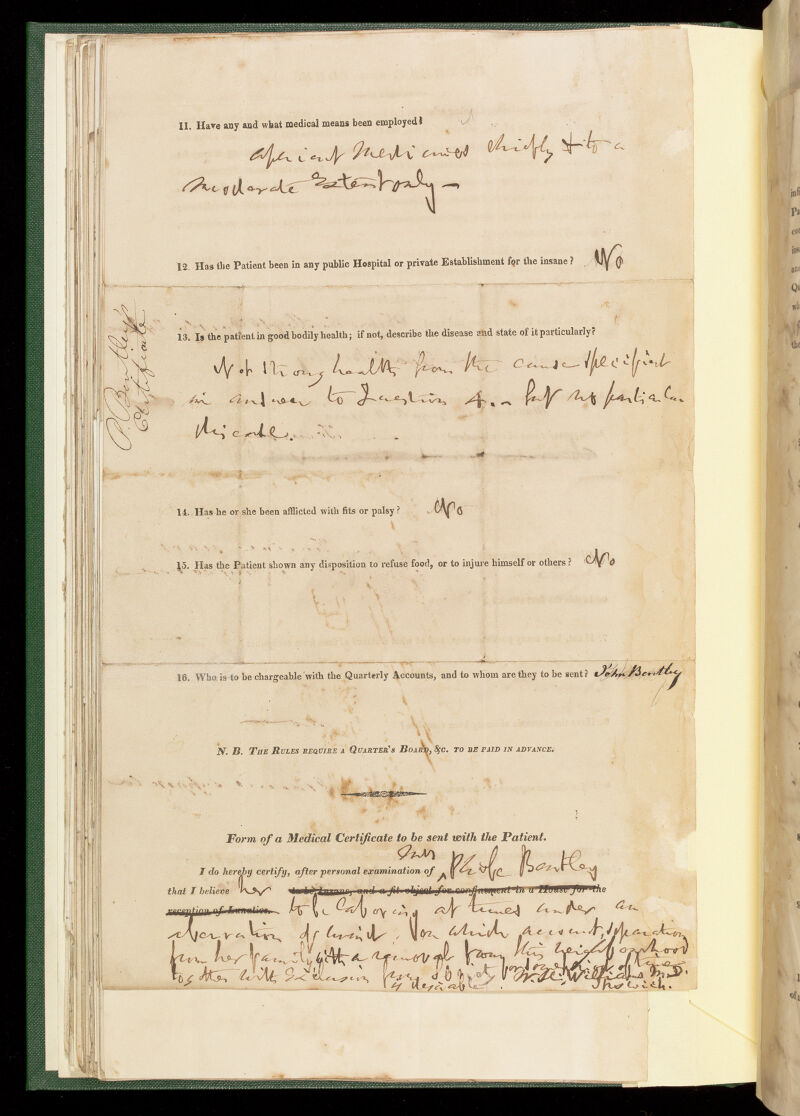 11. Have any and what medical means been employed?
Aperient Medicines chiefly & to a
Moderate Extent only —
12. Has the Patient been in any public Hospital or private Establishment for the insane? No
P. Bentley's
Certificate
13. Is the patient in good bodily health; if not, describe the disease and state of it particularly?
Not strong health from the cause specified
in answer to Question 4. – but no particular
discorble.
14. Has he or she been afflicted with fits or palsy? No
15. Has the Patient shown any disposition to refuse food, or to injure himself or others? No
16. Who is to be chargeable with the Quarterly Accounts, and to whom are they to be sent? John Bentley
N. B. THE RULES REQUIRE A QUARTER'S BOARD, &c. TO BE PAID IN ADVANCE.
Form of a Medical Certificate to be sent with the Patient.
Mrs
I do hereby certify, after personal examination of Phebe Bentley
that I believe her to be insane, and a fit object for confinement in a House for the
reception of Lunatics. to be labouring at times under an
aberration of mind, on which account, separation
from her family with a removal from this neighbourhood
together with seclusion from society for some time
is desirable. Williams M.D.
Ipswich.